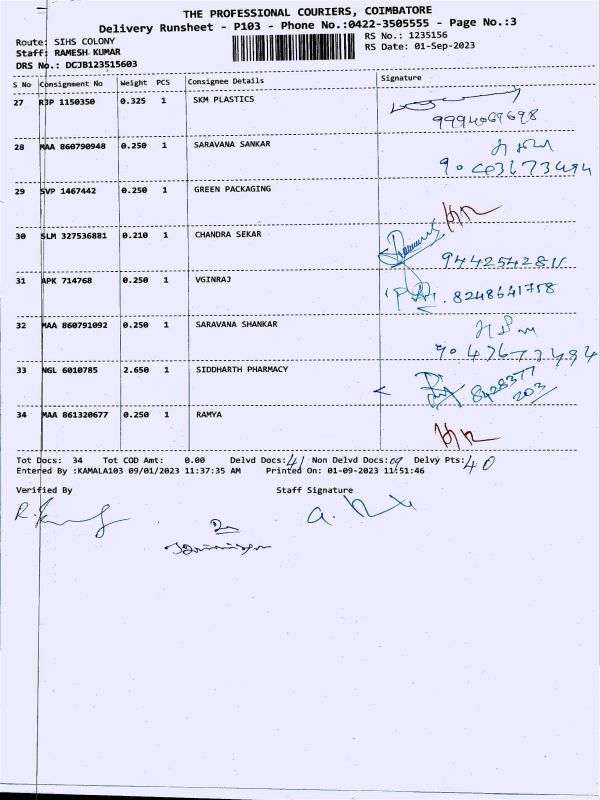 THE PROFESSIONAL COURIERS, COIMBATORE
Delivery Runsheet - P103 - Phone No.:0422-3505555 - Page No.:3
Route: SIHS COLONY RS No.: 1235156
Staff: RAMESH KUMAR RS Date: 01-Sep-2023
DRS No.: DCJB123515603
S No Consignment No Weight PCS Consignee Details Signature
27 RJP 1150350 0.325 1 SKM PLASTICS
9994069698
28 MAA 860790948 0.250 1 SARAVANA SANKAR
29 SVP 1467442 0.250 1 GREEN PACKAGING
30 SLM 327536881 0.210 1 CHANDRA SEKAR
9442542811
31 APK 714768 0.250 1 VGINRAJ
8248641758
32 MAA 860791092 0.250 1 SARAVANA SHANKAR
9043673494
33 NGL 6010785 2.650 1 SIDDHARTH PHARMACY
8428377
203
34 MAA 861320677 0.250 1 RAMYA
Tot Docs: 34 Tot COD Amt: 0.00 Delvd Docs: 41 Non Delvd Docs: 09 Delvy Pts: 40
Entered By :KAMALA103 09/01/2023 11:37:35 AM Printed On: 01-09-2023 11:51:46
Verified By Staff Signature